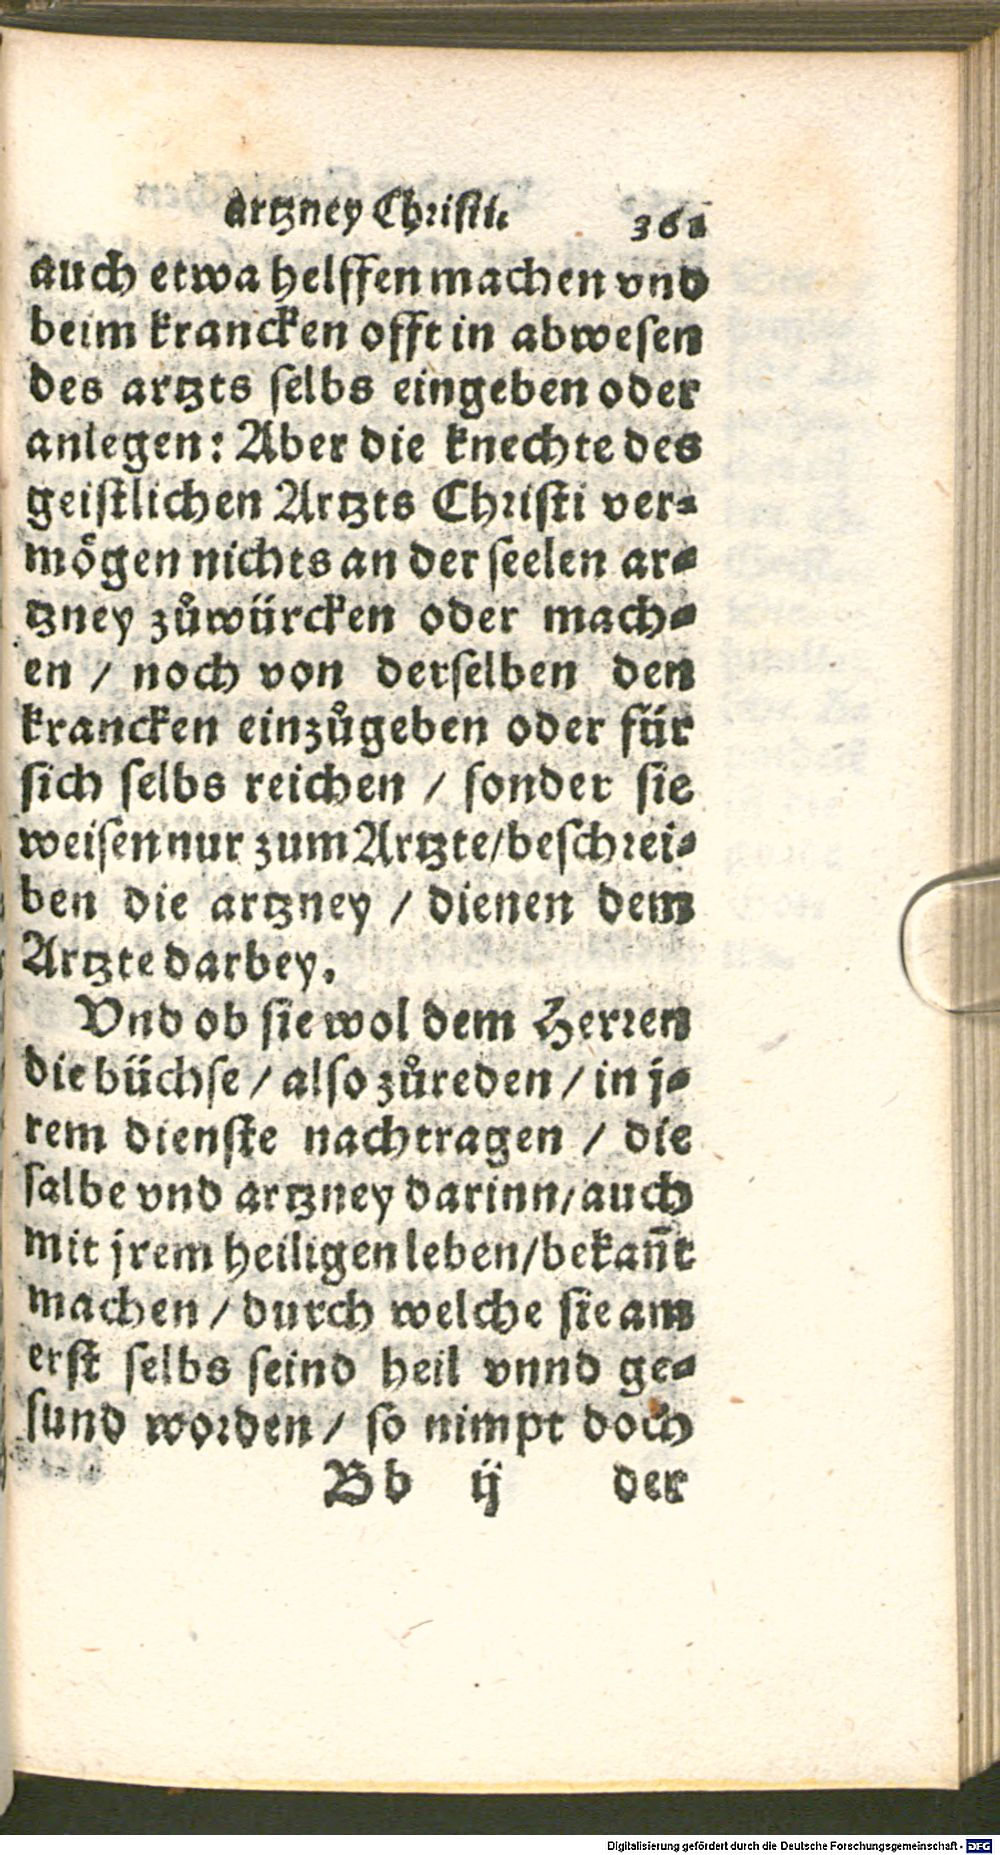 artzney Christi.     361
auch etwa helffen machen vnd
beim krancken offt in abwesen
des artzts selbs eingeben oder
anlegen: Aber die knechte des
geistlichen Artzts Christi ver⸗
mögen nichts an der seelen ar⸗
tzney zůwürcken oder mach⸗
en / noch von derselben den
krancken einzůgeben oder für
sich selbs reichen / sonder sie
weisen nur zum Artzte/beschrei⸗
ben die artzney / dienen dem
Artzte darbey.
Vnd ob sie wol dem Herren
die büchse / also zůreden / in j⸗
rem dienste nachtragen / die
salbe vnd artzney darinn/auch
mit jrem heiligen leben/bekañt
machen / durch welche sie am
erst selbs seind heil vnnd ge⸗
sund worden / so nimpt doch
Bb ij     der
Digitalisierung gefördert durch die Deutsche Forschungsgemeinschaft - DFG